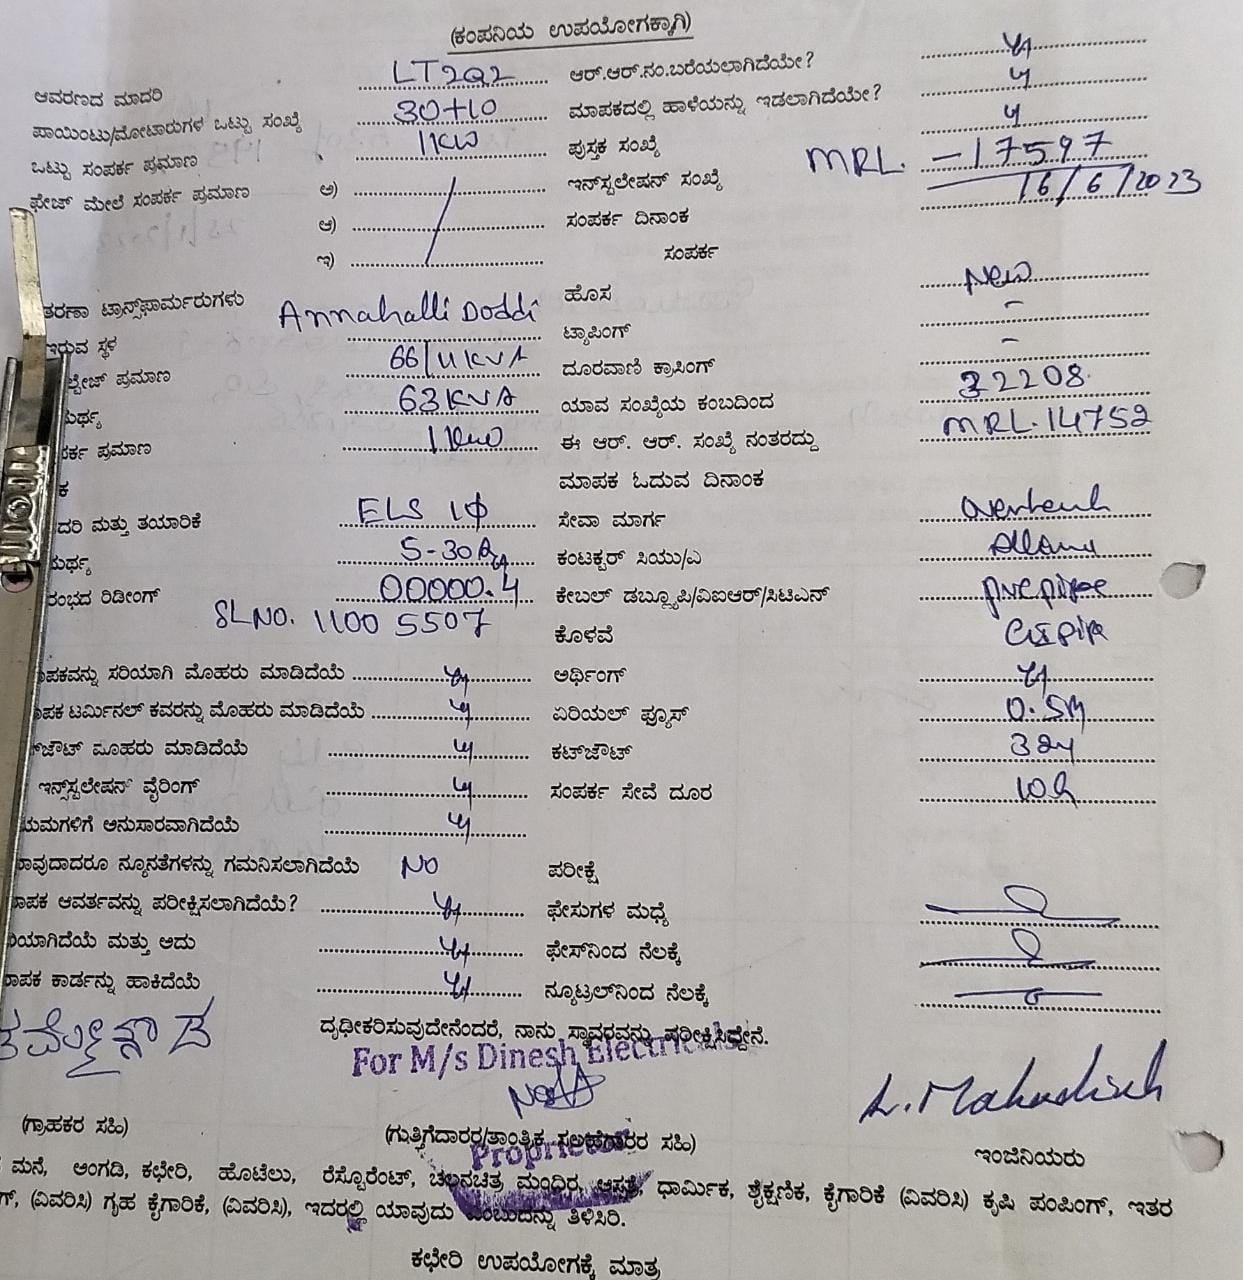 (ಕಂಪನಿಯ ಉಪಯೋಗಕ್ಕಾಗಿ)
ಆವರಣದ ಮಾದರಿ LT2a2 ಆರ್.ಆರ್.ನಂ.ಬರೆಯಲಾಗಿದೆಯೇ?
ಪಾಯಿಂಟು/ಮೋಟಾರುಗಳ ಒಟ್ಟು ಸಂಖ್ಯೆ 30+10 ಮಾಪಕದಲ್ಲಿ ಹಾಳೆಯನ್ನು ಇಡಲಾಗಿದೆಯೇ? y
ಒಟ್ಟು ಸಂಪರ್ಕ ಪ್ರಮಾಣ 1KW ಪುಸ್ತಕ ಸಂಖ್ಯೆ y
ಫೇಜ್ ಮೇಲೆ ಸಂಪರ್ಕ ಪ್ರಮಾಣ ಅ) ಇನ್‌ಸ್ಟಲೇಷನ್ ಸಂಖ್ಯೆ MRL. - 17597
ಆ) ಸಂಪರ್ಕ ದಿನಾಂಕ 16/6/2023
ಇ) ಸಂಪರ್ಕ
ತರಣಾ ಟ್ರಾನ್ಸ್‌ಫಾರ್ಮರುಗಳು Annahalli Doddi ಹೊಸ New
ಇರುವ ಸ್ಥಳ ಟ್ಯಾಪಿಂಗ್ -
ಲ್ಟೇಜ್ ಪ್ರಮಾಣ 66/11 KVA ದೂರವಾಣಿ ಕ್ರಾಸಿಂಗ್ -
ಮರ್ಥ್ಯ 63 KVA ಯಾವ ಸಂಖ್ಯೆಯ ಕಂಬದಿಂದ 32208
ಪರ್ಕ ಪ್ರಮಾಣ 1 KW ಈ ಆರ್. ಆರ್. ಸಂಖ್ಯೆ ನಂತರದ್ದು MRL.14752
ಕ ಮಾಪಕ ಓದುವ ದಿನಾಂಕ
ದರಿ ಮತ್ತು ತಯಾರಿಕೆ ELS 1ϕ ಸೇವಾ ಮಾರ್ಗ
ಮರ್ಥ್ಯ 5-30A ಕಂಟಕ್ಟರ್ ಸಿಯು/ಎ
ರಂಭದ ರಿಡೀಂಗ್ 00000.4 ಕೇಬಲ್ ಡಬ್ಲ್ಯೂಪಿ/ವಿಐಆರ್/ಸಿಟಿಎಸ್
SLNO. 1100 5507 ಕೊಳವೆ
ಾಪಕವನ್ನು ಸರಿಯಾಗಿ ಮೊಹರು ಮಾಡಿದೆಯೆ ಅರ್ಥಿಂಗ್
ಾಪಕ ಟರ್ಮಿನಲ್ ಕವರನ್ನು ಮೊಹರು ಮಾಡಿದೆಯೆ y ಏರಿಯಲ್ ಫ್ಯೂಸ್ 0.5m
್‌ಜೌಟ್ ಮೊಹರು ಮಾಡಿದೆಯೆ y ಕಟ್‌ಜೌಟ್
ಇನ್ಸ್‌ಸ್ಟಲೇಷನ್ ವೈರಿಂಗ್ y ಸಂಪರ್ಕ ಸೇವೆ ದೂರ
ಯಮಗಳಿಗೆ ಅನುಸಾರವಾಗಿದೆಯೆ y
ಾವುದಾದರೂ ನ್ಯೂನತೆಗಳನ್ನು ಗಮನಿಸಲಾಗಿದೆಯೆ NO ಪರೀಕ್ಷೆ
ಾಪಕ ಆವರ್ತವನ್ನು ಪರೀಕ್ಷಿಸಲಾಗಿದೆಯೆ? ಫೇಸುಗಳ ಮಧ್ಯೆ
ಿಯಾಗಿದೆಯೆ ಮತ್ತು ಅದು ಫೇಸ್‌ನಿಂದ ನೆಲಕ್ಕೆ
ಾಪಕ ಕಾರ್ಡನ್ನು ಹಾಕಿದೆಯೆ ನ್ಯೂಟ್ರಲ್‌ನಿಂದ ನೆಲಕ್ಕೆ
ದೃಢೀಕರಿಸುವುದೇನೆಂದರೆ, ನಾನು ಸ್ಥಾವರವನ್ನು ಪರೀಕ್ಷಿಸಿದ್ದೇನೆ.
For M/s Dinesh Electricals
(ಗ್ರಾಹಕರ ಸಹಿ) (ಗುತ್ತಿಗೆದಾರರ/ತಾಂತ್ರಿಕ ಸಲಹೆಗಾರರ ಸಹಿ) ಇಂಜಿನಿಯರು
Proprietor
ಮನೆ, ಅಂಗಡಿ, ಕಛೇರಿ, ಹೊಟೆಲು, ರೆಸ್ಟೊರೆಂಟ್, ಚಲನಚಿತ್ರ ಮಂದಿರ, ಆಸ್ಪತ್ರೆ, ಧಾರ್ಮಿಕ, ಶೈಕ್ಷಣಿಕ, ಕೈಗಾರಿಕೆ (ವಿವರಿಸಿ) ಕೃಷಿ ಪಂಪಿಂಗ್, ಇತರ
ಗ್, (ವಿವರಿಸಿ) ಗೃಹ ಕೈಗಾರಿಕೆ, (ವಿವರಿಸಿ), ಇದರಲ್ಲಿ ಯಾವುದು ಎಂಬುದನ್ನು ತಿಳಿಸಿರಿ.
ಕಛೇರಿ ಉಪಯೋಗಕ್ಕೆ ಮಾತ್ರ